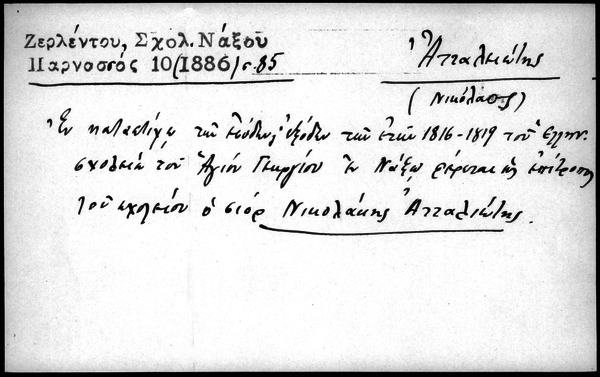 Ζερλέντου, Σχολ. Νάξου
Παρνασσός 10 (1886) σ. 85
Ἀτταλιώτης
(Νικόλαος)
Ἐν καταστίχῳ τῶν ἐσόδων, ἐξόδων τῶν ἐτῶν 1816-1819 τοῦ Ἑλλην.
σχολείου τοῦ Ἁγίου Γεωργίου ἐν Νάξῳ φέρεται ὡς ἐπίτροπος
τοῦ σχολείου ὁ σιόρ Νικολάκης Ἀτταλιώτης.